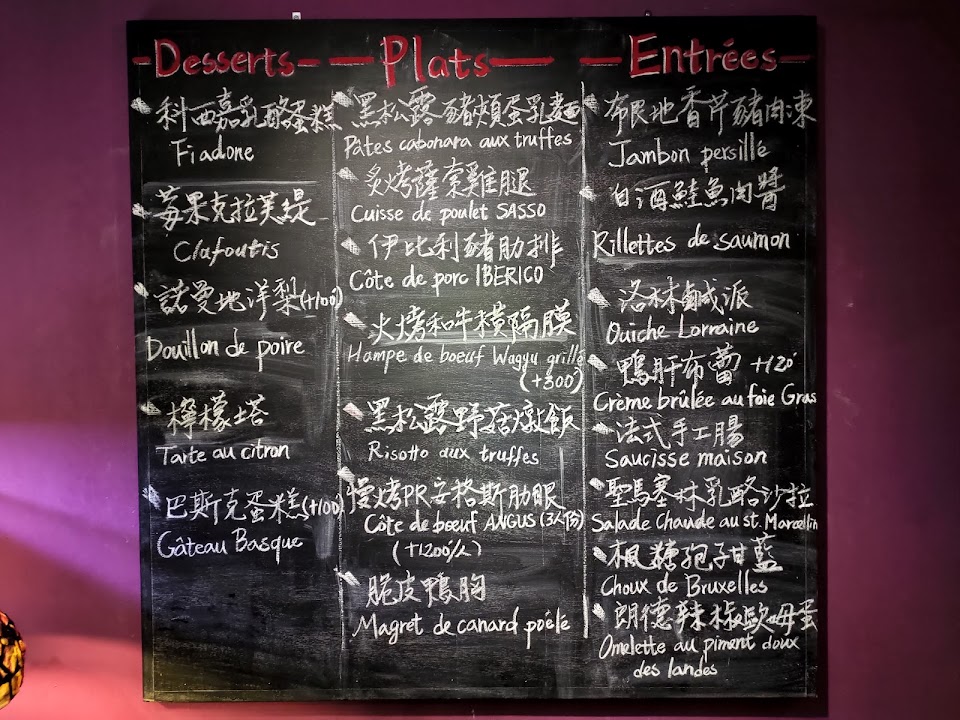 -Desserts-
科西嘉乳酪蛋糕
Fiadone
莓果克拉芙緹
Clafoutis
諾曼地洋梨(+100)
Douillon de poire
檸檬塔
Tarte au citron
巴斯克蛋糕(+100)
Gâteau Basque
—Plats—
黑松露豬頰蛋乳麵
Pâtes cabonara aux truffes
炙烤薩索雞腿
Cuisse de poulet SASSO
伊比利豬肋排
Côte de porc IBERICO
火烤和牛橫隔膜
Hampe de boeuf Wagyu grillé
(+300)
黑松露野菇燉飯
Risotto aux truffes
慢烤PR安格斯肋眼
Côte de boeuf ANGUS (3人份)
(+1200/人)
脆皮鴨胸
Magret de canard poêlé
—Entrées—
布根地香芹豬肉凍
Jambon persillé
白酒鮭魚肉醬
Rillettes de saumon
洛林鹹派
Quiche Lorraine
鴨肝布蕾 +120
Crème brûlée au foie Gras
法式手工腸
Saucisse maison
聖馬塞林乳酪沙拉
Salade Chaude au st. Marcellin
楓糖孢子甘藍
Choux de Bruxelles
朗德辣椒歐姆蛋
Omelette au piment doux
des landes